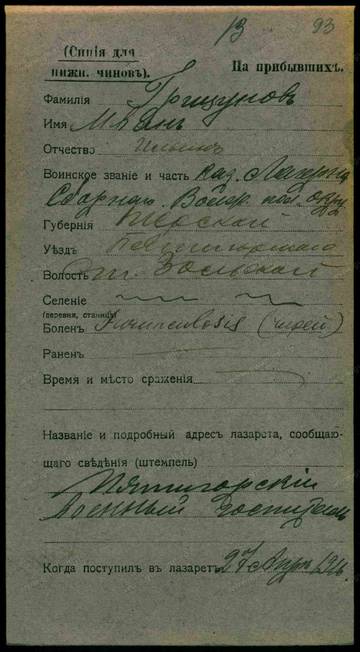 13 93
(Синія для
нижн. чиновъ).
На прибывшихъ.
Фамилія Грицуновъ
Имя Иванъ
Отчество
Воинское званіе и часть Каз.
Сборную
Губернія Терской
Уѣздъ Пятигорскаго
Волость ст.
Селеніе
(деревня, станица)
Боленъ
Раненъ
Время и мѣсто сраженія
Названіе и подробный адресъ лазарета, сообщаю-
щаго свѣдѣнія (штемпель)
Пятигорскій
Военный Госпиталь
Когда поступилъ въ лазаретъ 27 Апр